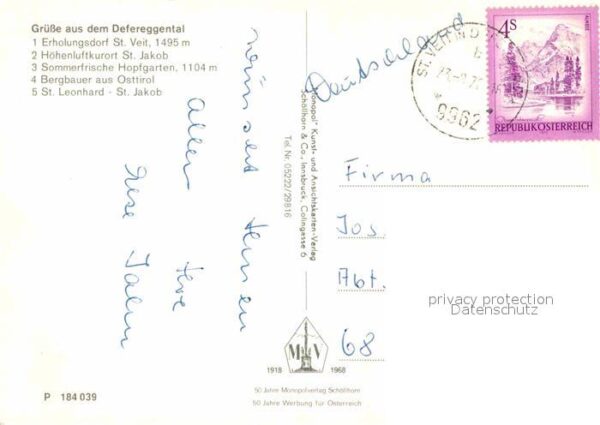 Grüße aus dem Defereggental
1 Erholungsdorf St. Veit, 1495 m
2 Höhenluftkurort St. Jakob
3 Sommerfrische Hopfgarten, 1104 m
4 Bergbauer aus Osttirol
5 St. Leonhard - St. Jakob
wünscht Ihnen
allen
Ihre
P 184 039
"Monopol" Kunst- und Ansichtskarten-Verlag
Schöllhorn & Co., Innsbruck, Colingasse 6
Tel. Nr. 05222/29816
M V
1918 1968
50 Jahre Monopolverlag Schöllhorn
50 Jahre Werbung für Österreich
Deutschland
ST. VEIT IN D
9962
4S
REPUBLIK ÖSTERREICH
Firma
Jos.
Abt.
68
privacy protection
Datenschutz